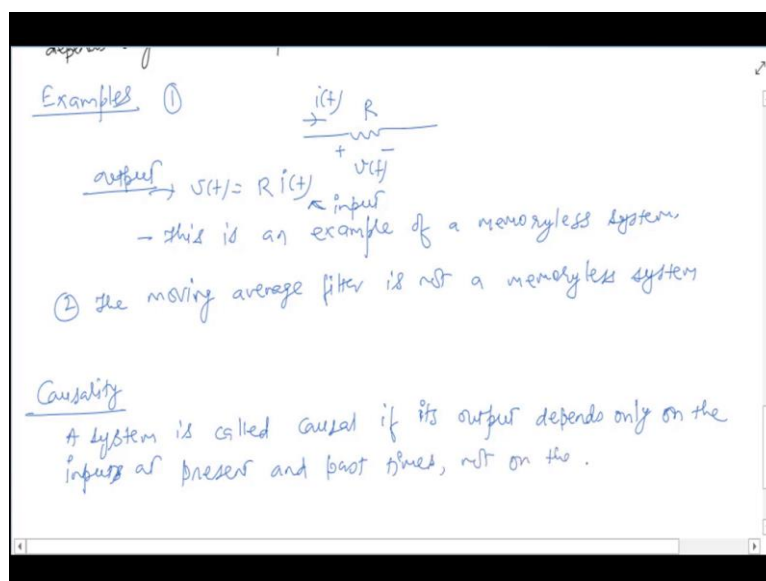 Examples ①
i(t) R
+ v(t) -
output → v(t) = R i(t) ← input
- This is an example of a memoryless system.
② The moving average filter is not a memoryless system
Causality
A system is called causal if its output depends only on the
inputs at present and past times, not on the .